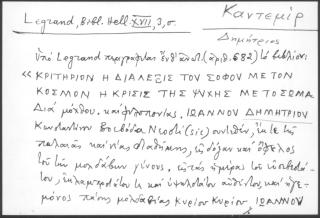 Legrand, Bibl. Hell. XVII, 3, σ.
Καντεμίρ
Δημήτριος
Ὑπὸ Legrand περιγράφεται (ἀριθ. 682) τὸ βιβλίον:
« ΚΡΙΤΗΡΙΟΝ Η ΔΙΑΛΕΞΙΣ ΤΟΥ ΣΟΦΟΥ ΜΕ ΤΟΝ
ΚΟΣΜΟΝ Η ΚΡΙΣΙΣ ΤΗΣ ΨΥΧΗΣ ΜΕ ΤΟ ΣΩΜΑ
Διὰ μόχθου καὶ φιλοπονίας ΙΩΑΝΝΟΥ ΔΗΜΗΤΡΙΟΥ
Κωνσταντίνου Βοεβόδα (sic) συντεθὲν, ἐκ τε τῆς
παλαιᾶς καὶ νέας διαθήκης, εἰς δόξαν καὶ ὄφελος
τοῦ τῶν μολδάβων γένους,
καὶ ὑψηλοτάτου αὐθέντου καὶ ἡγε-
μόνος πάσης μολδαβίας κυρίου κυρίου ΙΩΑΝΝΟΥ